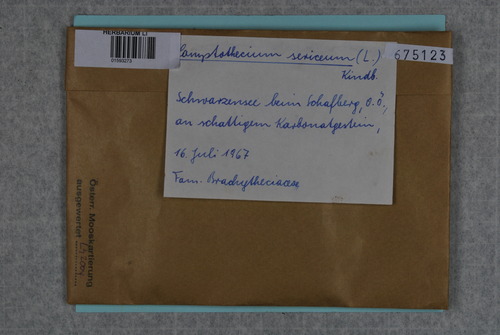 HERBARIUM LI
675123
Camptothecium sericeum (L.)
Kindb.
Schwarzensee beim Schafberg, O.Ö.,
an schattigem Karbonatgestein,
16. Juli 1967
Fam. Brachytheciaceae
Österr. Mooskartierung
ausgewertet